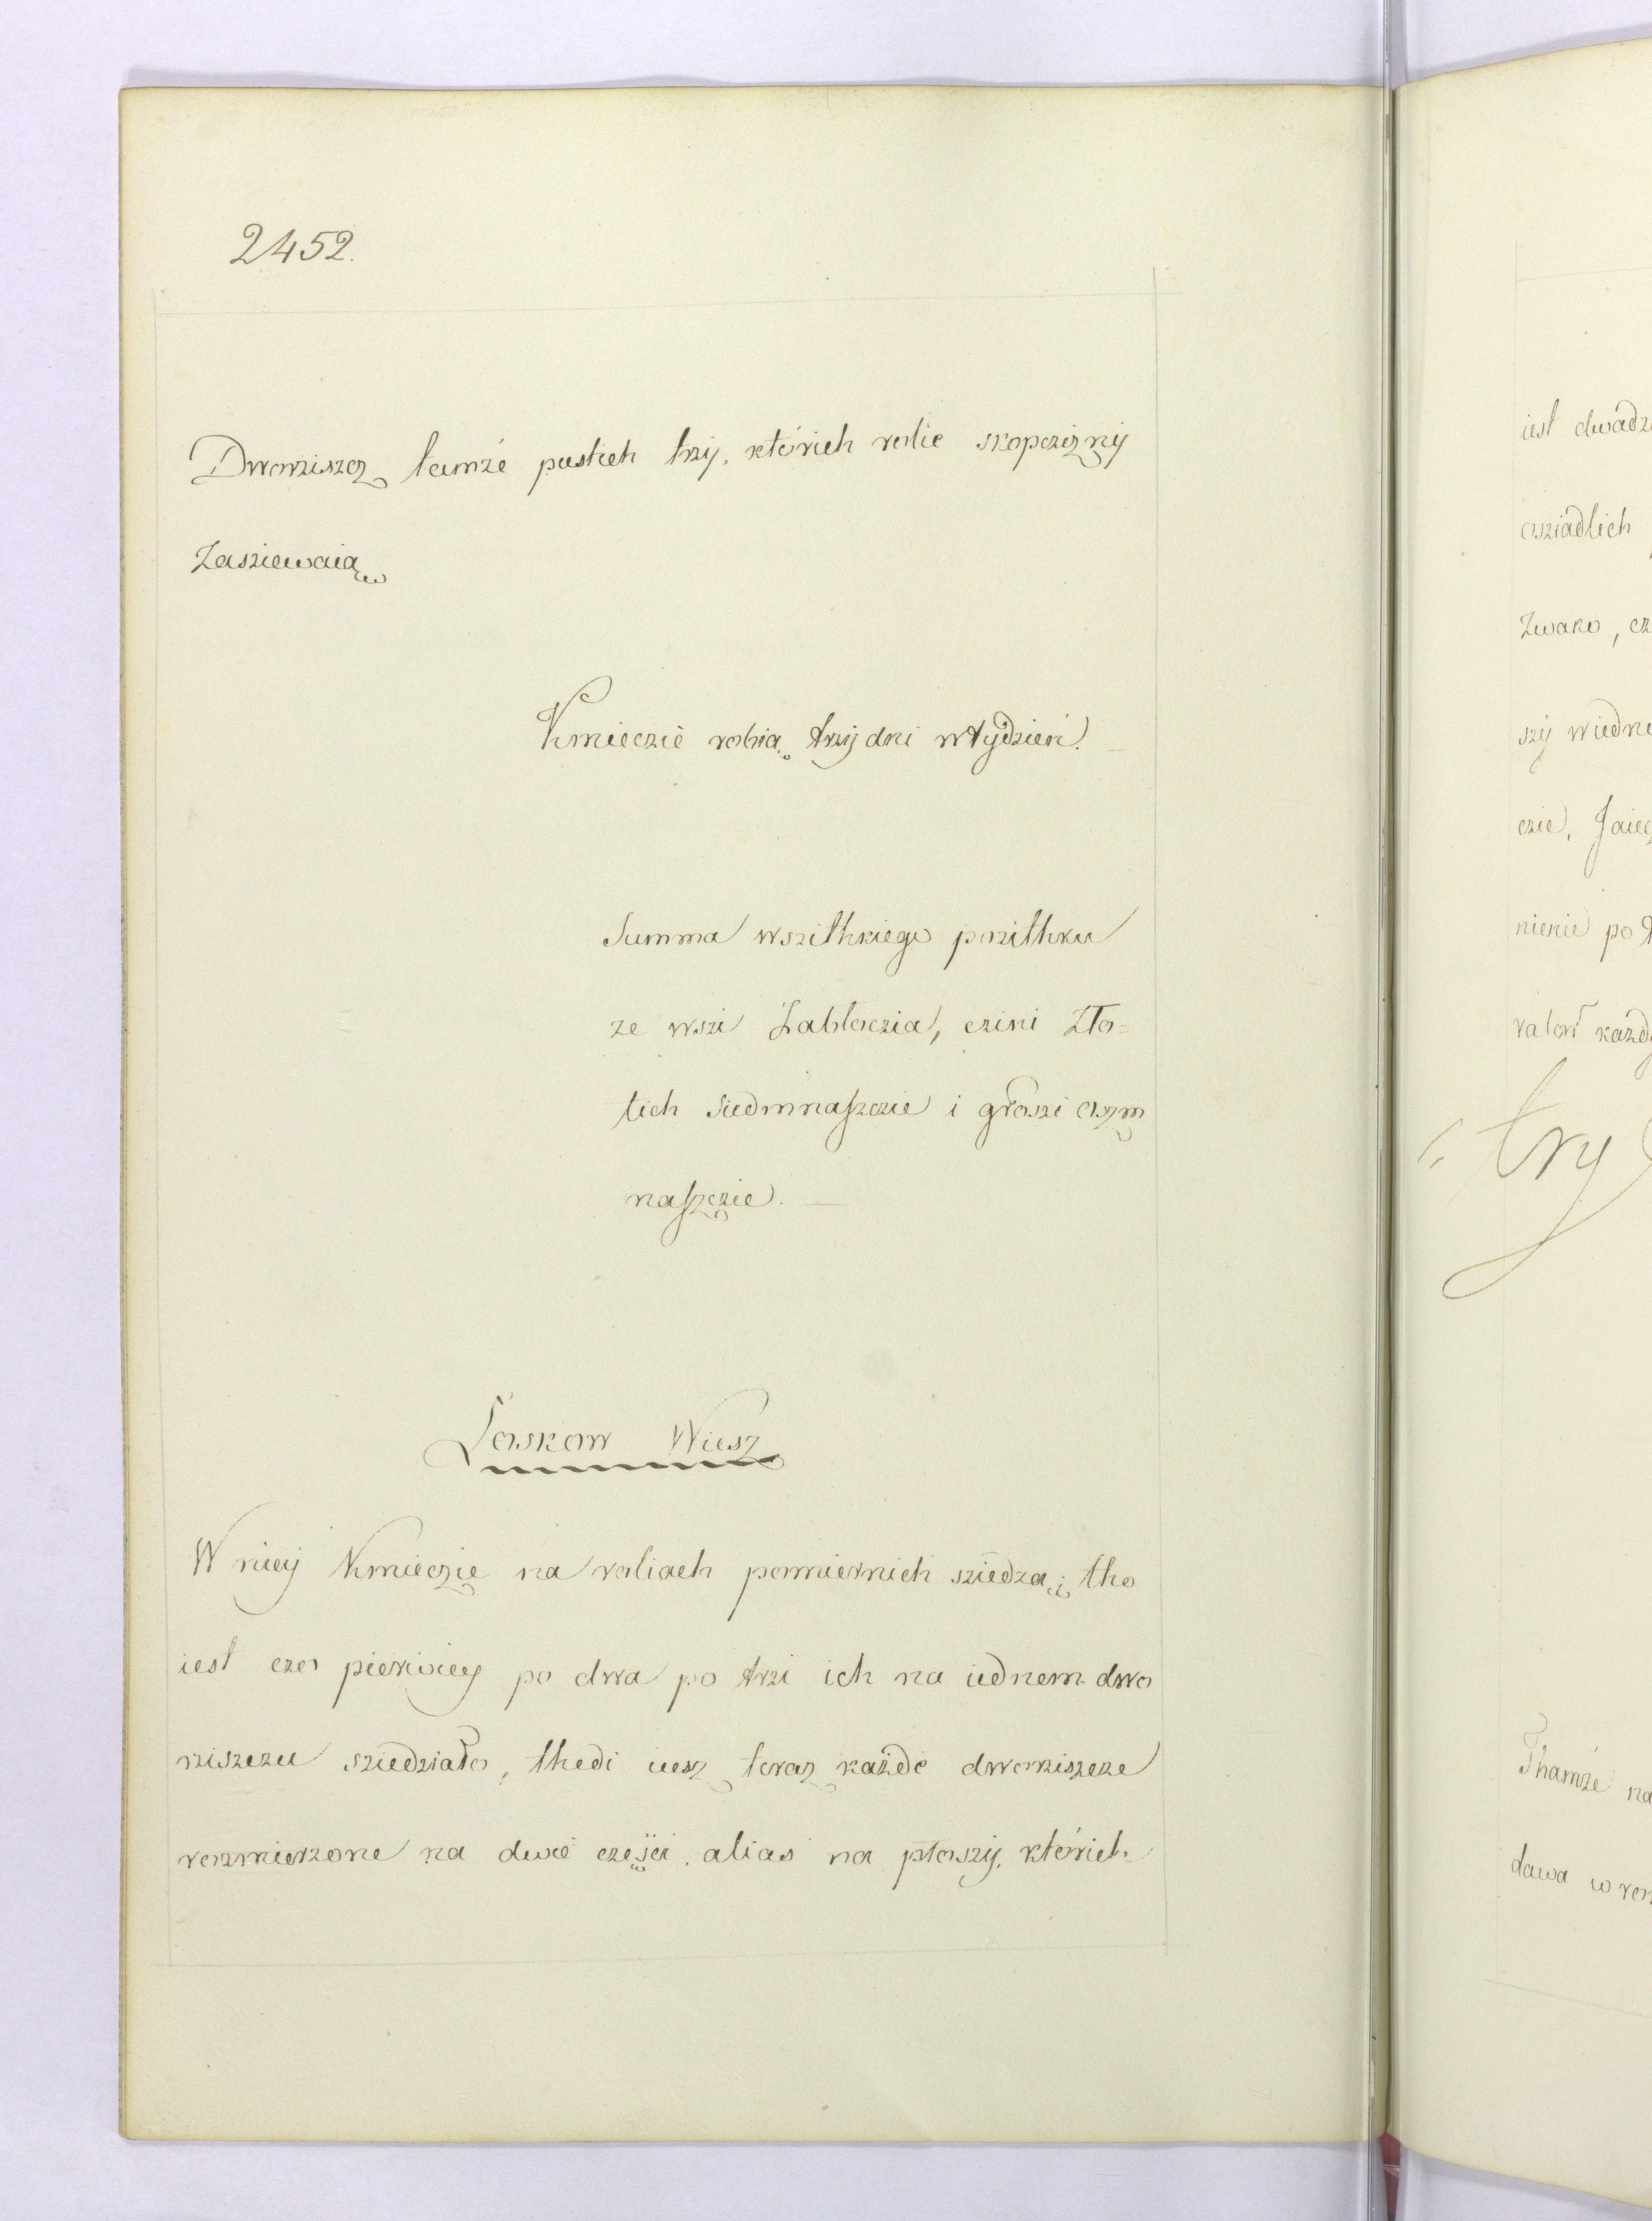 2452.
Dworziszcz tamże pustich trzy, których rolie skopczizny
Zasziewaią
Kmieczie robią trzy dni wtydzień.
Summa wszithkiego pozithku
ze wszi Zabłoczia, czini Zło=
tich siedmnaszczie i groszi oszm
naszczie. —
Loskow Wiesz
W niey Kmieczie na roliach pomiernich sziedzą; tho
iest czo pierwiey po dwa po trzi ich na iednem dwo
rziszczu sziedziało, thedi iusz toraz każde dworziszcze
rozmierzone na dwie części. alias na płoszy, których
iest
osziadlich
Zwano,
szy
czie,
nienie po
try
Thamże na
dawa w